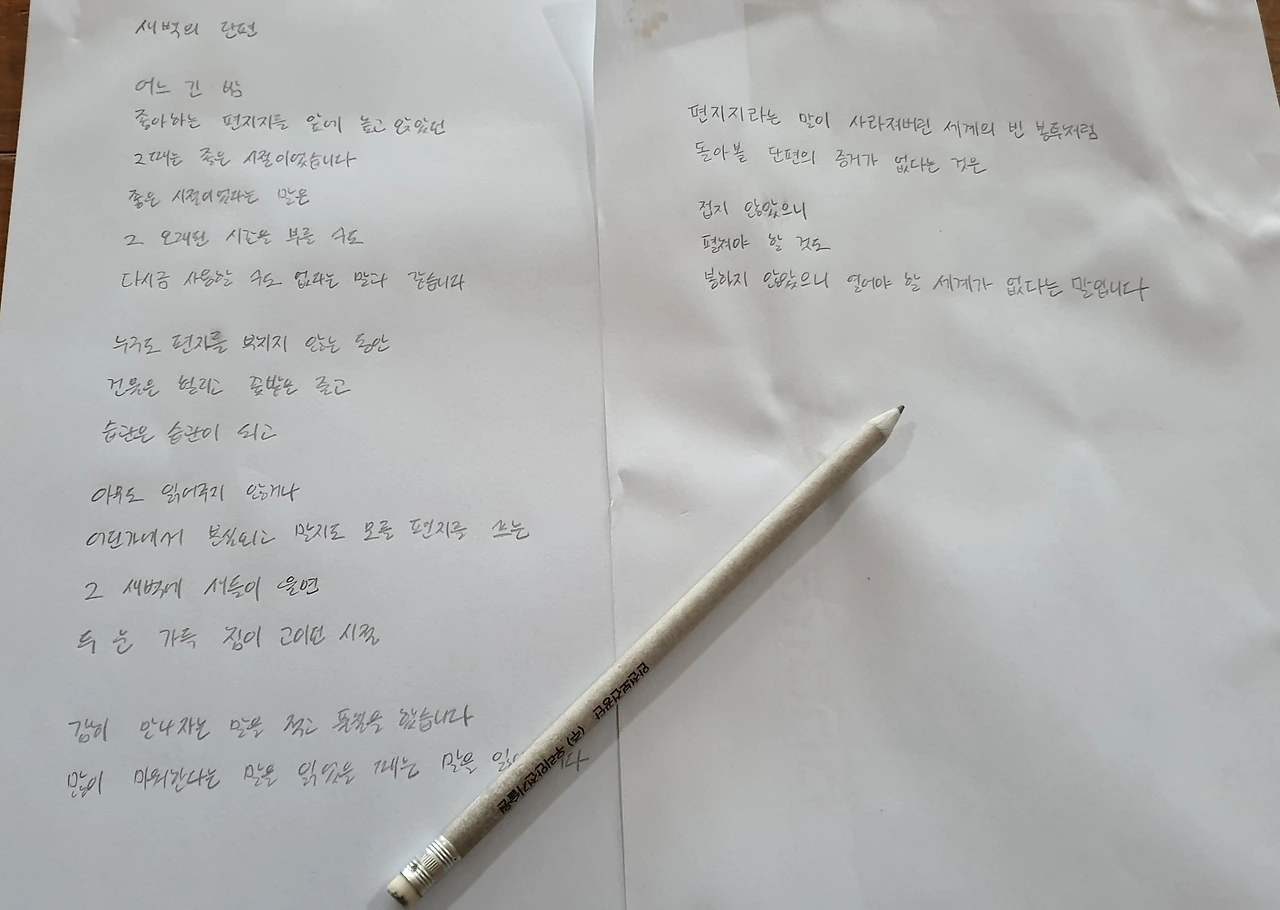 새벽의 단편
어느 긴 밤
좋아하는 편지지를 앞에 놓고 앉았던
그때는 좋은 시절이었습니다
좋은 시절이었다는 말은
그 오래된 시간을 부를 수도
다시금 사용할 수도 없다는 말과 같습니다
누구도 편지를 부치지 않는 동안
건물은 헐리고 꽃밭은 줄고
습관은 습관이 되고
아무도 읽어주지 않거나
어딘가에서 분실되고 말지도 모를 편지를 쓰는
그 새벽에 새들이 울면
두 눈 가득 잠이 고이던 시절
감히 만나자는 말을 적고 동봉을 했습니다
많이 아파한다는 말을 읽었을 때는 말을
편지지라는 말이 사라져버린 세계의 빈 봉투처럼
돌아볼 단편의 증거가 없다는 것은
접지 않았으니
펼쳐야 할 것도
봉하지 않았으니 열어야 할 세계가 없다는 말입니다
안전보건공단 (주) 우리안전기술원